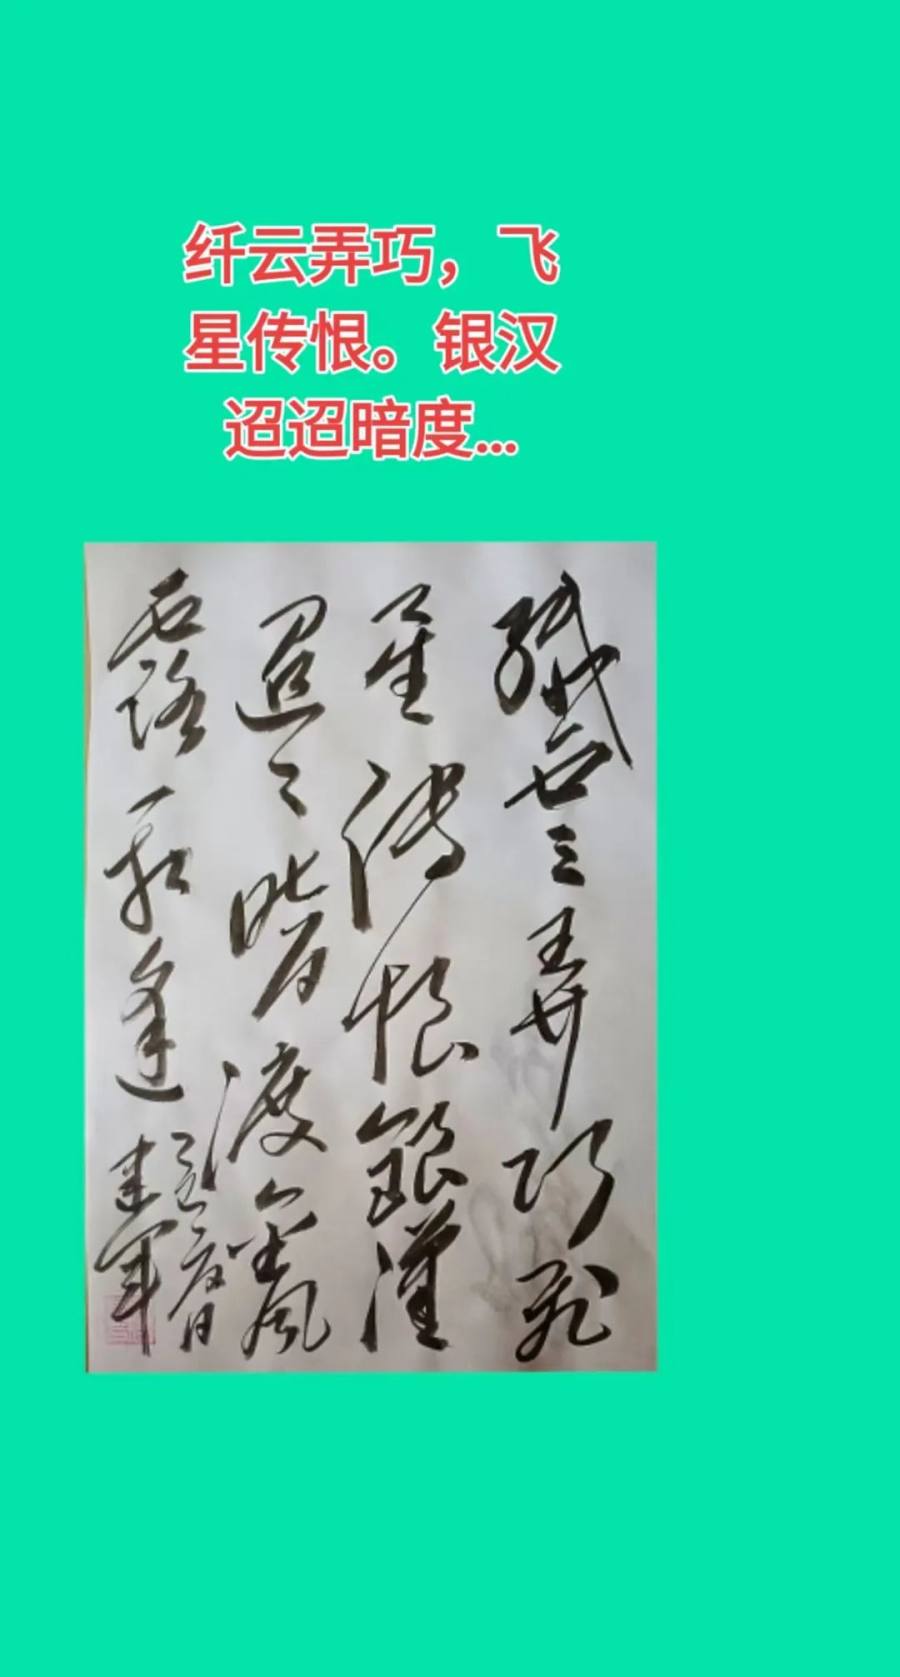 纤云弄巧，飞
星传恨。银汉
迢迢暗度...
纖雲弄巧飛
星傳恨銀漢
迢々暗渡金風
一相逢
建軍